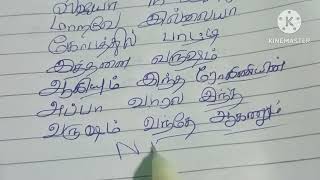 மாறவே இல்லையா
கோபத்தில் பாட்டி
இத்தனை வருஷம்
ஆகியும் இந்த ரோகிணியின்
அப்பா வரல இந்த
வருஷம் வந்தே ஆகணும்
N
KINEMASTER